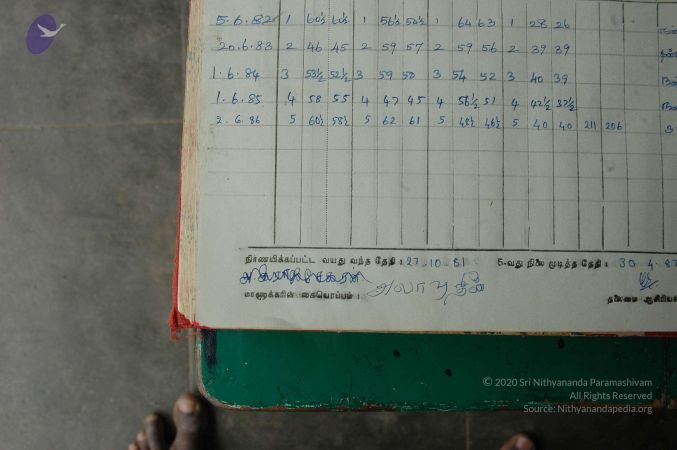 5.6.82 1 60½ 60½ 1 56½ 54½ 1 64 63 1 28 26
20.6.83 2 46 45 2 59 57 2 59 56 2 39 39
1.6.84 3 53½ 52½ 3 59 50 3 54 52 3 40 39
1.6.85 4 58 55 4 47 45 4 56½ 51 4 42½ 37½
2.6.86 5 60½ 58½ 5 62 61 5 48½ 46½ 5 40 40 211 206
நிர்ணயிக்கப்பட்ட வயது வந்த தேதி : 27.10.81 5-வது நிலை முடித்த தேதி : 30.4.87
மாணாக்கரின் கையொப்பம் : அலாவுதீன் தலைமை ஆசிரிய
© 2020 Sri Nithyananda Paramashivam
All Rights Reserved
Source: Nithyanandapedia.org